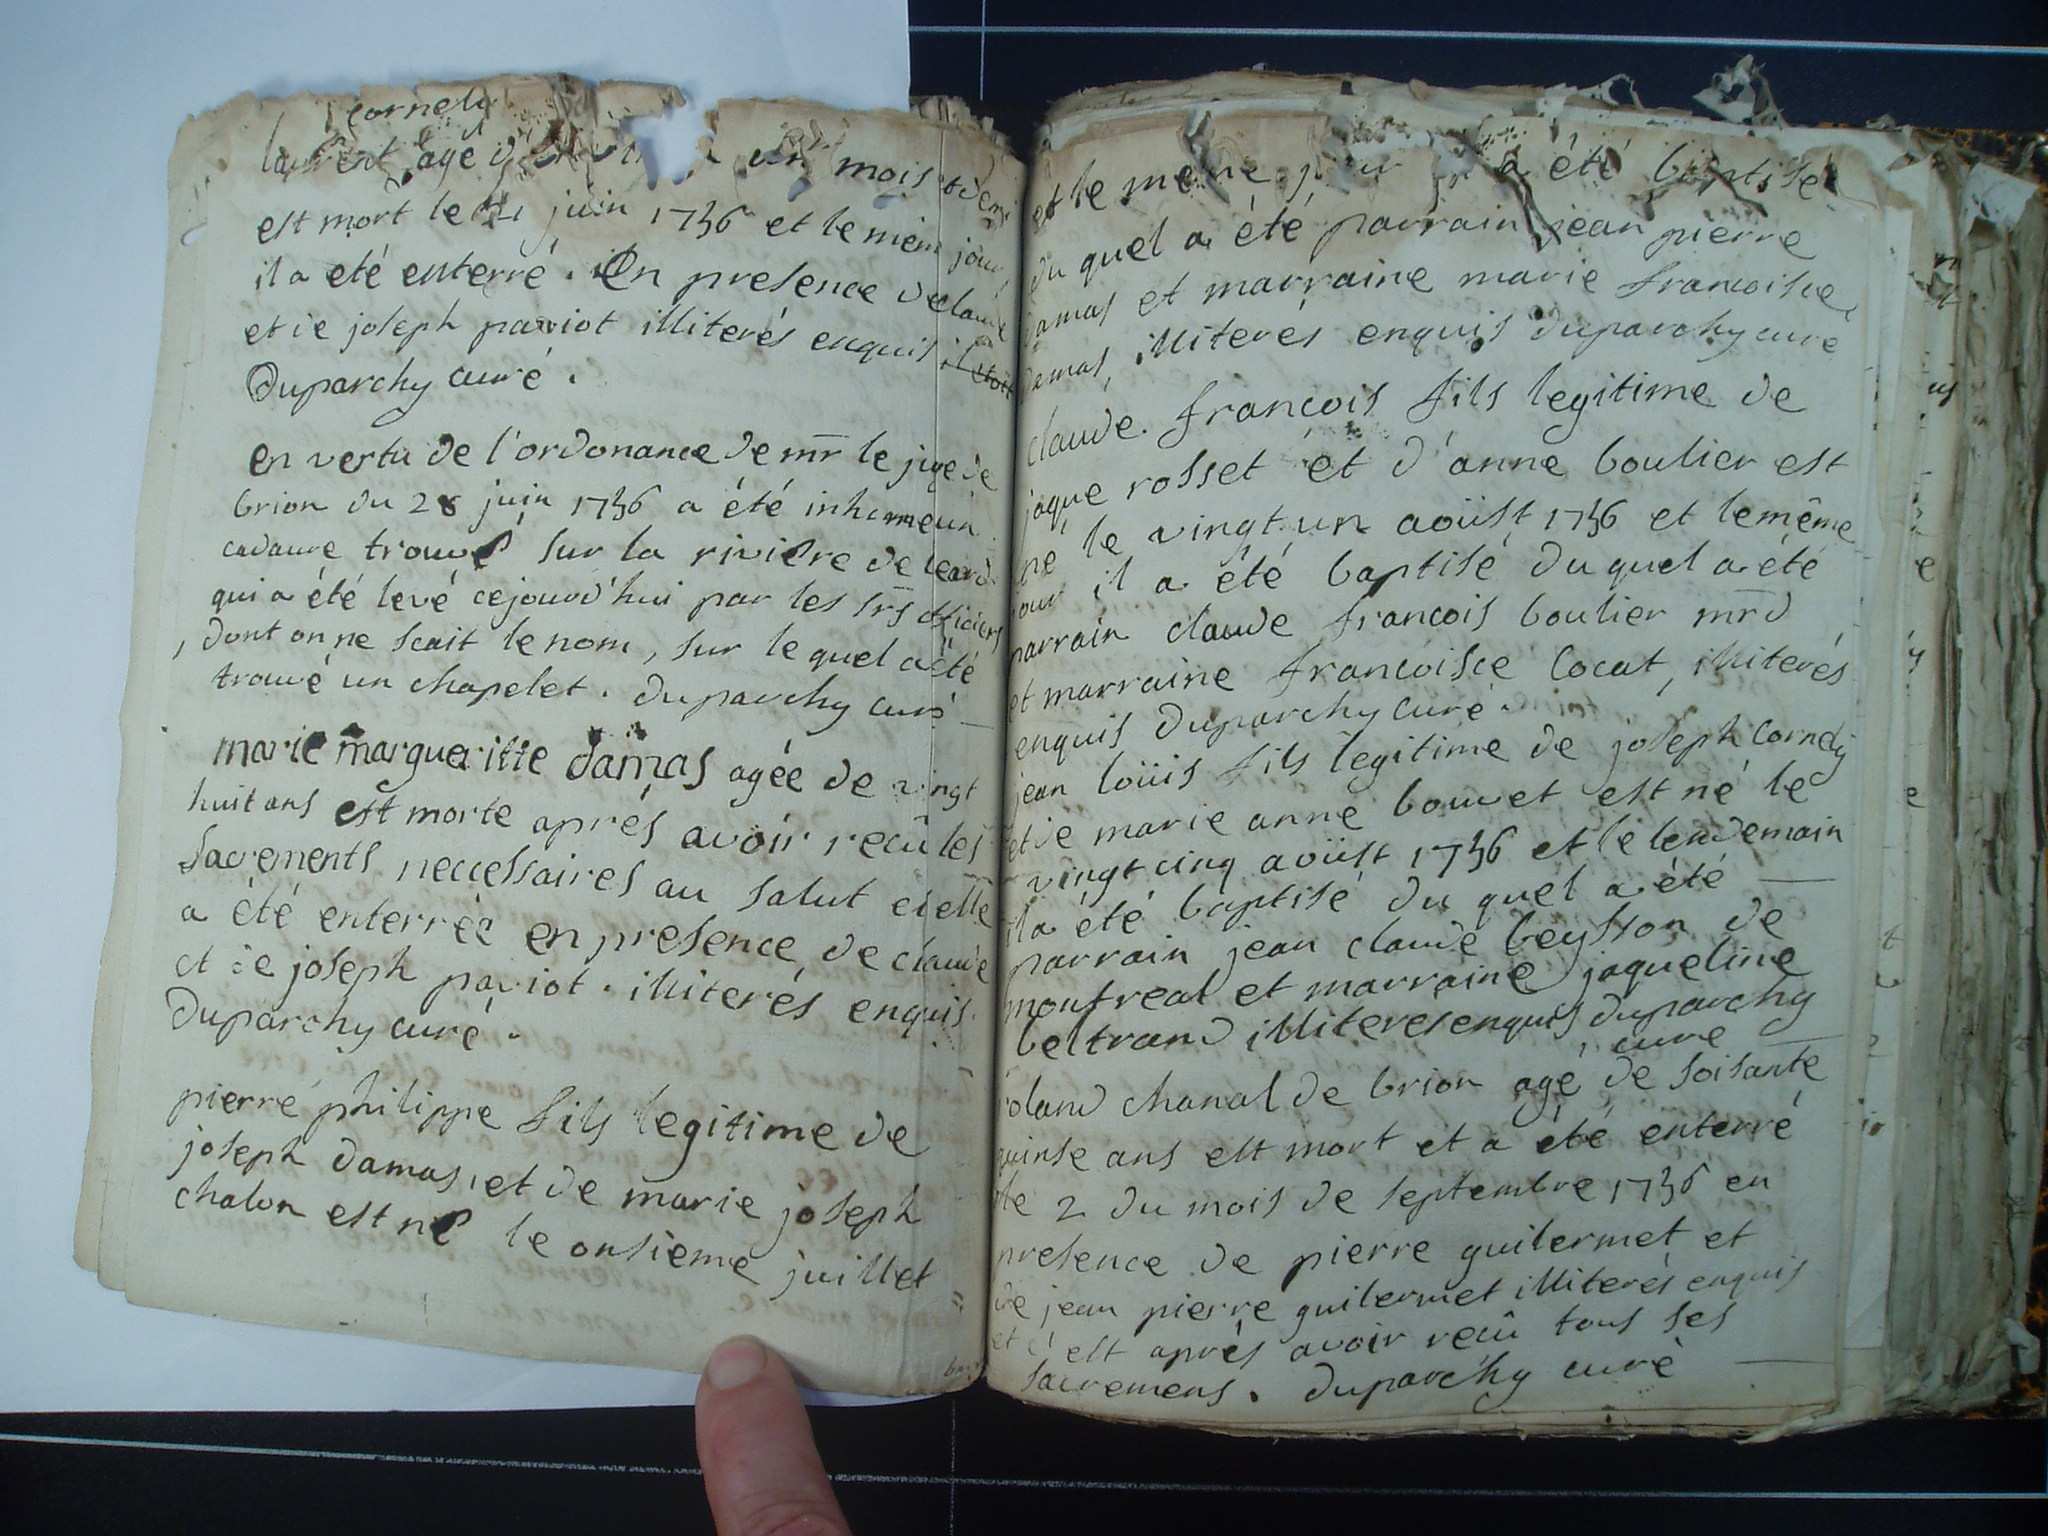 cornely
laurent agé un mois et demi
est mort le 21 juin 1736 et le meme jour
il a eté enterré. En presence de claude
et de joseph paviot illiterés enquis il etoit
Duparchy curé.
en vertu de l'ordonance de mr le juge de
brion du 28 juin 1736 a été inhumé un
cadavre trouvé sur la riviere de
qui a été levé cejourd'hui par les srs officiers
, dont on ne scait le nom, sur le quel a été
trouvé un chapelet. duparchy curé
marie margueritte damas agée de vingt
huit ans est morte aprés avoir recû les
Sacrements neccessaires au salut et elle
a été enterrée en presence de claude
et de joseph paviot. illiterés enquis.
Duparchy curé.
pierre philippe fils legitime de
joseph damas, et de marie joseph
chalon est né le onsieme juillet
et le meme jour il a été baptisé
du quel a été parrain jean pierre
damas et marraine marie francoise
damas, illiterés enquis duparchy curé
claude. francois fils legitime de
jaque rosset et d'anne boulier est
né le vingt un aoüst 1736 et le même
jour il a été baptisé du quel a été
parrain claude francois boulier mrd
et marraine francoise cocat, illiterés
enquis duparchy curé.
jean loüis fils legitime de joseph cornely
et de marie anne bouvet est né le
vingt cinq aoüst 1736 et le lendemain
il a été baptisé du quel a été
parrain jean claude beysson de
montreal et marraine jaqueline
beltrand illiteres enquis duparchy
curé
roland chanal de brion agé de soisante
quinse ans est mort et a été enterré
le 2 du mois de septembre 1736 en
presence de pierre guilermet et
de jean pierre guilermet illiterés enquis
et c'est aprés avoir recû tous ses
sacremens. duparchy curé